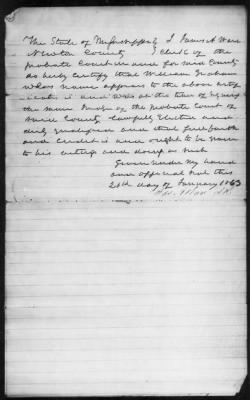 The State of Mississippi } I James A Ware
Newton County } Clerk of the
probate Court in and for said County
do herby certify that William Graham
whose name appears to the above
is and was at the time of signing
the same Judge of the probate Court of
said County lawfully Elected and
duly qualified and that full faith
and credit is and ought to be given
to his acting and doing as such
Given under my hand
and official seal this
20th day of January 1863